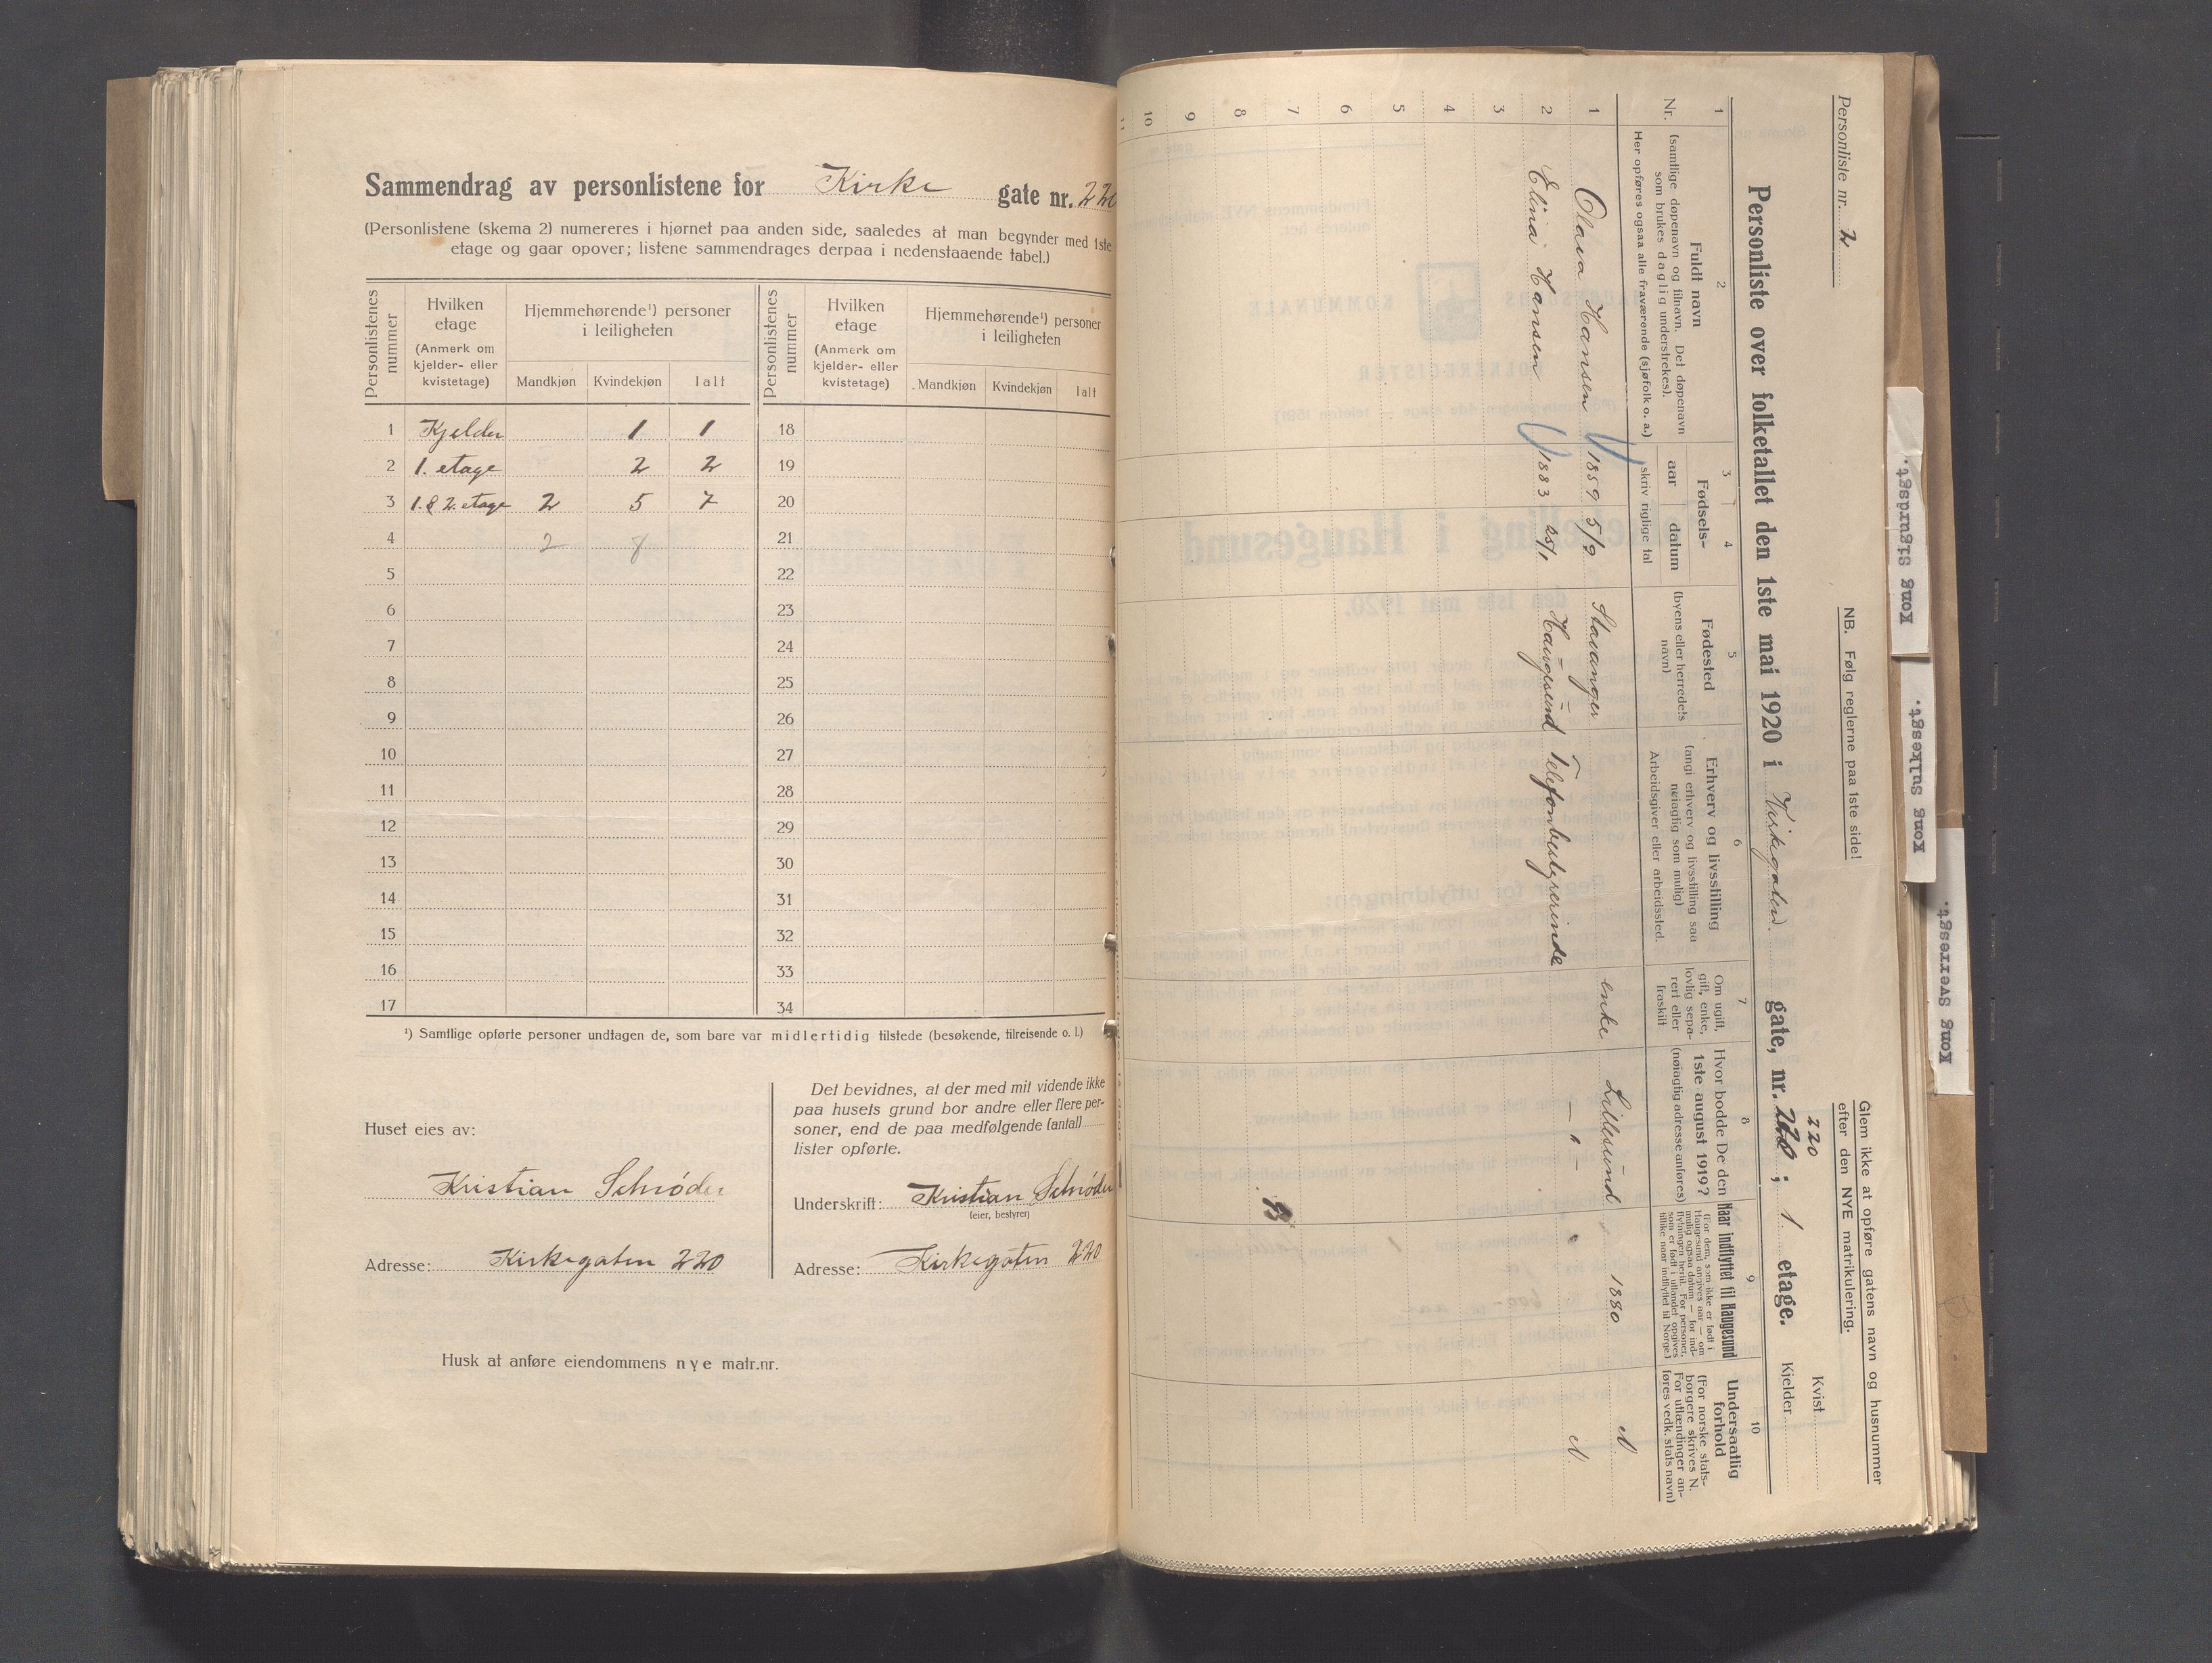 Sammendrag av personlistene for Kirke gate nr. 220
(Personlistene (skema 2) numereres i hjørnet paa anden side, saaledes at man begynder med 1ste
etage og gaar opover; listene sammendrages derpaa i nedenstaaende tabel.)
Personlistenes nummer
Hvilken etage (Anmerk om kjelder- eller kvistetage)
Hjemmehørende¹) personer i leiligheten
Mandkjøn Kvindekjøn Ialt
Personlistenes nummer
Hvilken etage (Anmerk om kjelder- eller kvistetage)
Hjemmehørende¹) personer i leiligheten
Mandkjøn Kvindekjøn Ialt
1 Kjelder 1 1 18
2 1. etage 2 2 19
3 1. & 2. etage 2 5 7 20
4 2 8 21
5 22
6 23
7 24
8 25
9 26
10 27
11 28
12 29
13 30
14 31
15 32
16 33
17 34
¹) Samtlige opførte personer undtagen de, som bare var midlertidig tilstede (besøkende, tilreisende o. l.)
Huset eies av:
Kristian Schrøder
Adresse: Kirkegaten 220
Det bevidnes, at der med mit vidende ikke
paa husets grund bor andre eller flere per-
soner, end de paa medfølgende (antal)
lister opførte.
Underskrift: Kristian Schrøder
(eier, bestyrer)
Adresse: Kirkegaten 220
Husk at anføre eiendommens nye matr.nr.
Personliste nr. 2
NB. Følg reglerne paa 1ste side!
Glem ikke at opføre gatens navn og husnummer
efter den NYE matrikulering.
220
Kvist
Personliste over folketallet den 1ste mai 1920 i Kirkegaten gate, nr. 220; 1 etage.
Kjelder
1 2 3 4 5 6 7 8 9 10
Nr.
Fuldt navn
(samtlige døpenavn og tilnavn. Det døpenavn
som brukes daglig understrekes).
Her opføres ogsaa alle fraværende (sjøfolk o. a.)
Fødsels-
aar datum
skriv rigtige tal
Fødested
(byens eller herredets
navn)
Erhverv og livsstilling
(angi erhverv og livsstilling saa
nøiagtig som mulig)
Arbeidsgiver eller arbeidssted.
Om ugift,
gift, enke,
lovlig sepa-
rert eller
fraskilt
Hvor bodde De den
1ste august 1919?
(nøiagtig adresse anføres)
Naar indflyttet til Haugesund
(For dem, som ikke er født i
Haugesund angives aar — om
mulig ogsaa datum — for ind-
flytningen hertil. For personer,
som er født i utlandet opgives
tillike naar indflyttet til Norge.)
Undersaatlig
forhold
(For norske stats-
borgere skrives N.
For utlændinger an-
føres vedk. stats navn)
1 Olava Hansen 1859 5/9 Stavanger enke Lillesund 1880 N
2 Elina Hansen 1883 25/1 Haugesund Telefonbestyrerinde — " — N
3
4
5
6
7
8
9
10
11
Kong Sigurdsgt.
Kong Sulkesgt.
Kong Sverresgt.